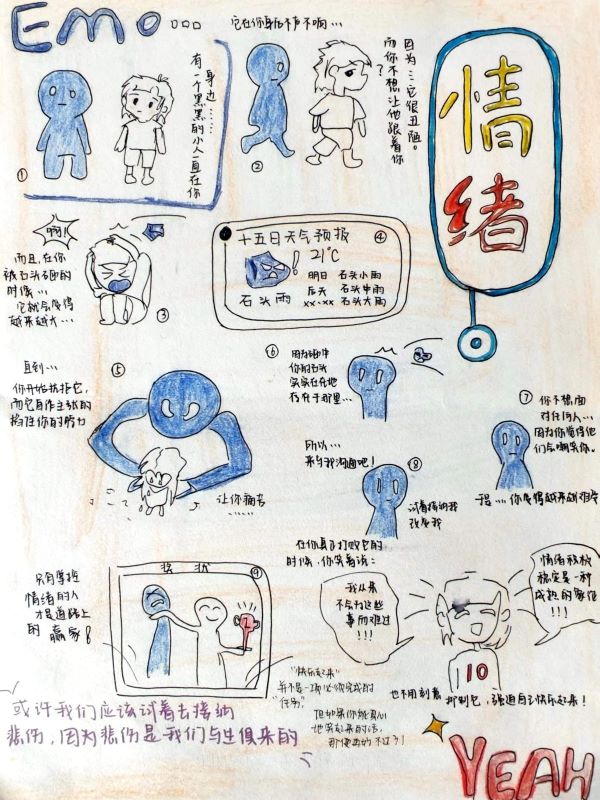 EMO...
身边……
有一个黑黑
的小人一直在你
①
它在你身后不声不响…
因为…它很丑陋。
而你不想让他跟着你
?
②
情
绪
啊!
而且,在你
被石头砸的
时候…
它就会变得
越来越大…
③
十五日天气预报
④
21℃
石头雨
明日 石头小雨
后天 石头中雨
xx-xx 石头大雨
直到…
你开始抗拒它,
而它自作主张的
挡住你的努力
⑤
让你痛苦
⑥
因为砸中
你的石头
实实在在地
存于那里…
⑦
你不想面
对任何人…
因为你觉得他
们会嘲笑你。
所以…
来与我沟通吧!
⑧
试着接纳我
改变我
在你真正打败它的
时候,你笑着说:
我从来
不会为这些
事而难过
!!!
情绪积极
稳定是一种
成熟的象征
!!!
10
只有掌控
情绪的人
才是道路上
的 赢家!
⑨
1
"快乐起来"
并不是一项必须完成的
"任务"
但如果你能真心
地笑起来的话,
那便再好不过了!
也不用刻意 抑制它,强迫自己快乐起来!
或许我们应该试着去接纳
悲伤,因为悲伤是我们与生俱来的
YEAH